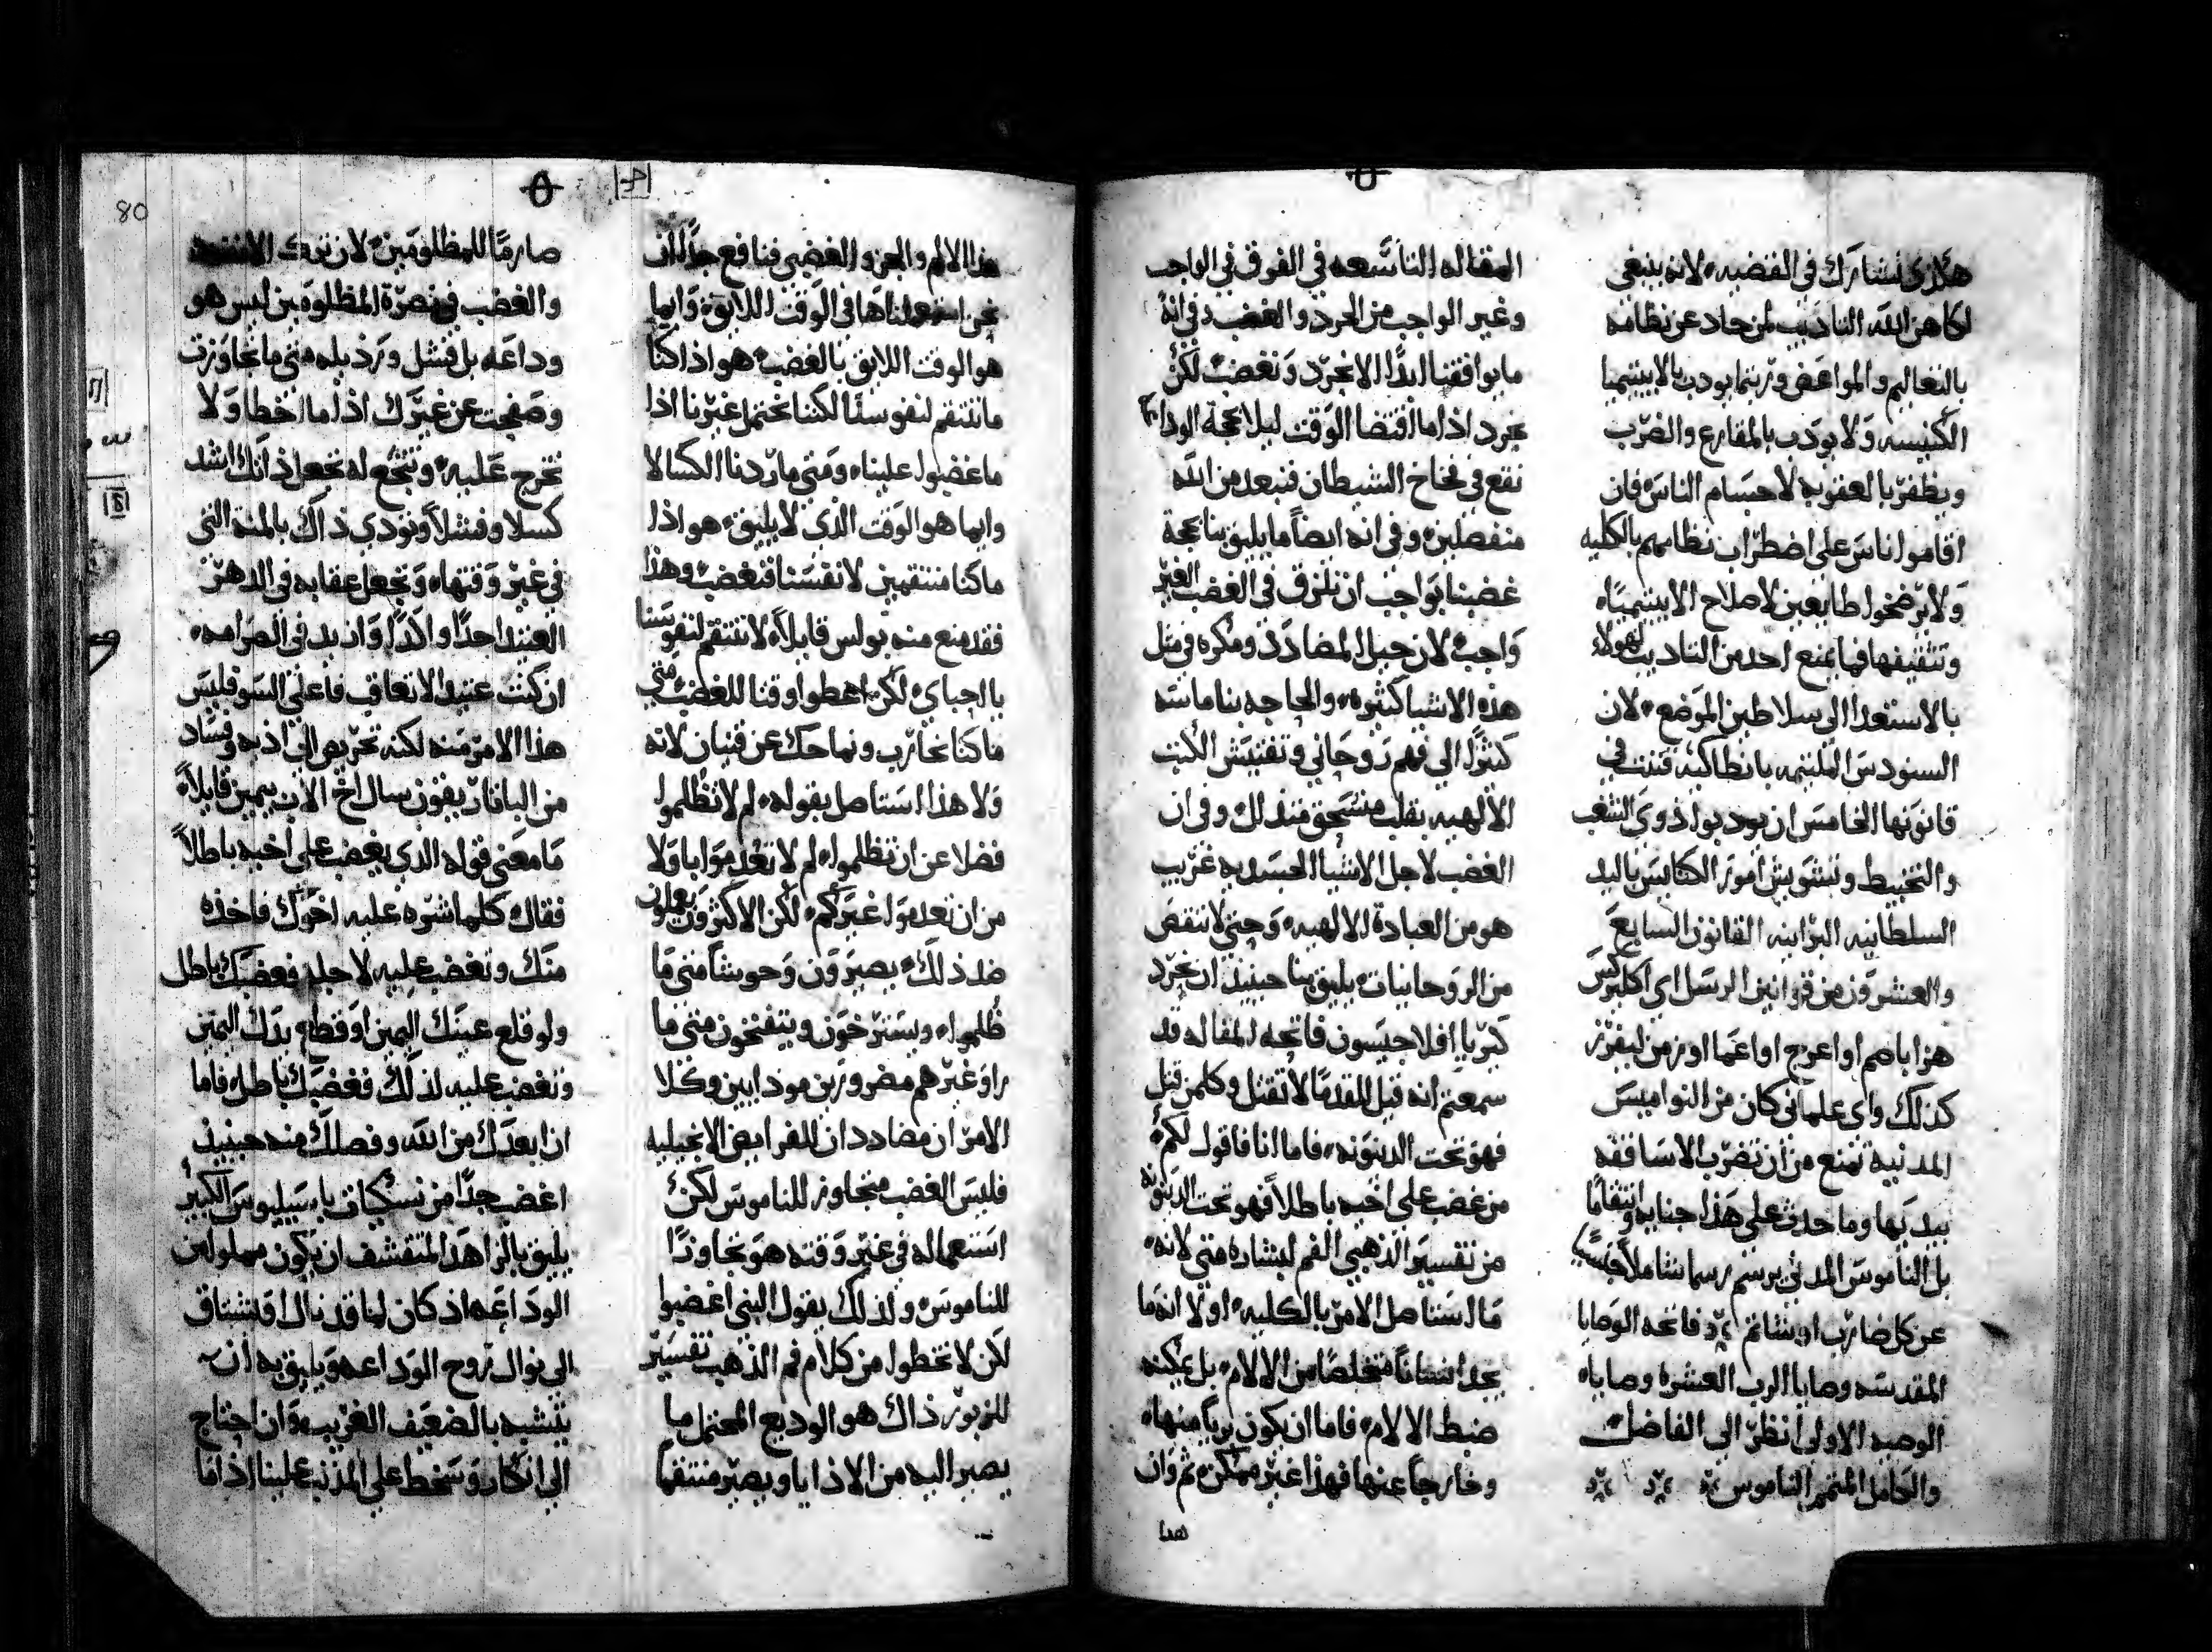 هذا الذى نشارك في القضيه لانه ينبغي
لكاهن الله التاديب لمن حاد عن نظامه
بالتعاليم والمواعض وربتما يودب بالابيتيميا
الكنيسه ولا يودب بالمقارع والضرب
ويظفر بالعقوبه لاجسام الناس فان
اقاموا اناس على اضطراب نظامهم بالكليه
ولا يرضخوا طايعين لاصلاح الابيتيميا
وتثقيفها فما يمنع احد من التاديب لهولاء
بالاستعدا الى سلاطين الموضع لان
السنودس الملتيمه بانطاكيه قننت في
قانونها الخامس ان يودبوا ذوي الشغب
والتخبيط وتشويش امور الكنايس باليد
السلطانيه البرانيه القانون السابع
والعشرون من قوانين الرسل اي اكليركس
هزا باصم او اعرج او اعما او زمن ليفرز
كذلك واي علماني كان من النواميس
المدنيه تمنع من ان تضرب الاساقفه
بيديها وما حدث على هذا جنايه وانتقامًا
بل الناموس المدني يرسم رسما شاملًا
عن كل ضارب او شاتم فاتحه الوصايا
المقدسه وصايا الرب العشره وصاياه
الوصيه الاولى انظر الى الفاضل
والكامل المتمم الناموس
المقاله التاسعه في الفرق في الواجب
وغير الواجب من الحرد والغضب وفي انه
ما يوافقنا ابدًا الا نحرد ونغضب لكن
نحرد اذا ما اقتضا الوقت ليلا بحجة الوداعه
نقع في فخاخ الشيطان فنبعد من الله
منفصلين وفي انه ايضًا ما يليق بنا بحجة
غضبنا بواجب ان نلزق في الغضب الغير
واجب لان حيل المضادد ومكره في مثل
هذه الاشيا كثيره والحاجه بنا ماسه
كثيرًا الى فهم روحاني وتفتيش الكتب
الالهيه بقلب منسحق متذلل وفي ان
الغضب لاجل الاشيا الجسديه غريب
هو من العبادة الالهيه وحتى لا ننقص
من الروحانيات يليق بنا حينيذ ان نحرد
كيريا افلاجيسون فاتحه المقاله قد
سمعتم انه قيل للقدما لا تقتل وكلمن قتل
فهو تحت الدينونه فاما انا فاقول لكم
من غضب على اخيه باطلًا فهو تحت الدينونه
من تفسير الذهبي الفم لبشاره متي لانه
ما استاصل الامر بالكليه اولا انه ما
يجد انسانًا متخلصًا من الالام بل يمكنه
ضبط الالام فاما ان يكون بريًا منها
وخارجًا عنها فهذا غير ممكن ثم وان
هذا
هذا الالم والحزن الغضبي فنافع جدًا ان
نحن استعملناها في الوقت اللايق وايما
هو الوقت اللايق بالغضب هو اذا كنا
ما ننتقم لنفوسنا لكننا نحتمل غيرنا اذا
ما غضبوا علينا ومتي ما ردنا الكسالا
وايما هو الوقت الذي لا يليق هو اذا
ما كنا منتقمين لانفسنا فنغضب وهذا
فقد منع منه بولس قايلًا لا تنتقم لنفوسنا
يا احباي لكن اعطوا وقتا للغضب متي
ما كنا نحارب ونماحك عن قنيان لانه
ولا هذا استاصل بقوله لم لا تظلموا
فضلا عن ان تظلموا لم لا تعدموا با ولا
من ان تعدموا غيركم لكن الاكثرون يعملون
ضد ذلك يصيرون وحوشًا متى ما
ظلموا ويسترخون ويتفتخون متى ما
راو غيرهم مضرورين موذايين وكلا
الامران مضاددان للفرايض الانجيليه
فليس الغضب متجاوز للناموس لكن
استعماله في غير وقته هو تجاوزًا
للناموس ولذلك يقول النبي اغضبوا
لكن لا تخطوا من كلام فم الذهب تفسير
للزبور ذاك هو الوديع المحتمل ما
يصير اليه من الاذايا ويصير منتقمًا
80
صارمًا للمظلومين لان ترك
والغضب في نصرة المظلومين ليس هو
وداعه بل فشل ورذيله متي ما تجاوزت
وصفحت عن غيرك اذا ما اخطا ولا
تحرج عليه وتتجع له تجعل ذاتك اشد
كسلا وفشلًا وتودي ذاك بالمنه التي
في غير وقتها وتجعل عقابه في الدهر
العتيد احدًا والدًا وازيد في الصرامه
ان كنت عتيدا لا تعاف فاعلي السو فليس
هذا الامر منه لكنه تحريض الى اذيه وفساد
من الباقاريقون سال اخ الاب بيمين قايلًا
ما معني قوله الذي يغضب على اخيه باطلًا
فقال كلما شره عليه اخوك فاخذه
منك وتغضب عليه لاجله فغضبك باطل
ولو قلع عينك اليمين او قطع يدك اليمين
وتغضب عليه لذلك فغضبك باطل فاما
ان ابعدك من الله وفصلك منه حينيذ
اغضب جدًا من نسكيات باسيليوس الكبير
يليق بالزاهد المتقشف ان يكون مملوا من
الوداعه اذ كان اما قد نال او يشتاق
الى نوال روح الوداعه ويليق به ان
يتشبه بالضعيف الغريب وان احتاج
الى انكار وسخط على المذنب علينا اذا ما